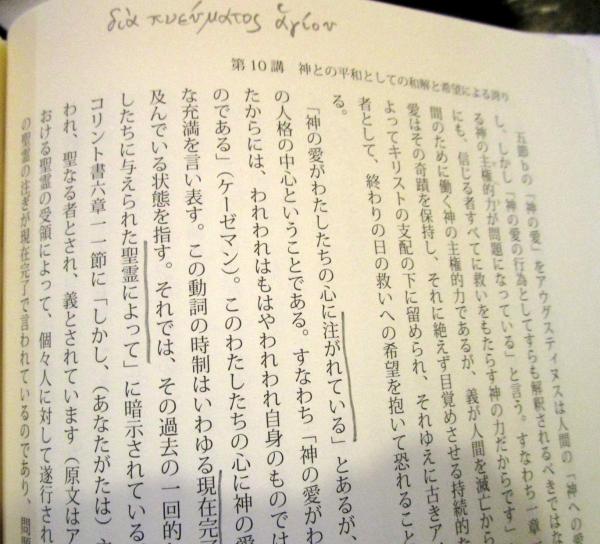 διὰ πνεύματος ἁγίου
第10講 神との平和としての和解と希望による誇り
五節bの「神の愛」をアウグスティヌスは人間の「神への愛
し、しかし「神の愛の行為としてすらも解釈されるべきではな
る神の主権的力が問題になっている」と言う。すなわち一章一
にも、信じる者すべてに救いをもたらす神の力だからです」
間のために働く神の主権的力であるが、義が人間を滅亡から
愛はその奇蹟を保持し、それに絶えず目覚めさせる持続的な
よってキリストの支配の下に留められ、それゆえに古きア
者として、終わりの日の救いへの希望を抱いて恐れること
る。
「神の愛がわたしたちの心に注がれている」とあるが、
の人格の中心ということである。すなわち「神の愛がわ
たからには、われわれはもはやわれわれ自身のものでは
のである」（ケーゼマン）。このわたしたちの心に神の愛
な充満を言い表す。この動詞の時制はいわゆる現在完了
及んでいる状態を指す。それでは、その過去の一回的
したちに与えられた聖霊によって」に暗示されている
コリント書六章一一節に「しかし、（あなたがたは）
われ、聖なる者とされ、義とされています（原文はア
おける聖霊の受領によって、個々人に対して遂行され
の聖霊の注ぎが現在完了で言われているのであり、問題